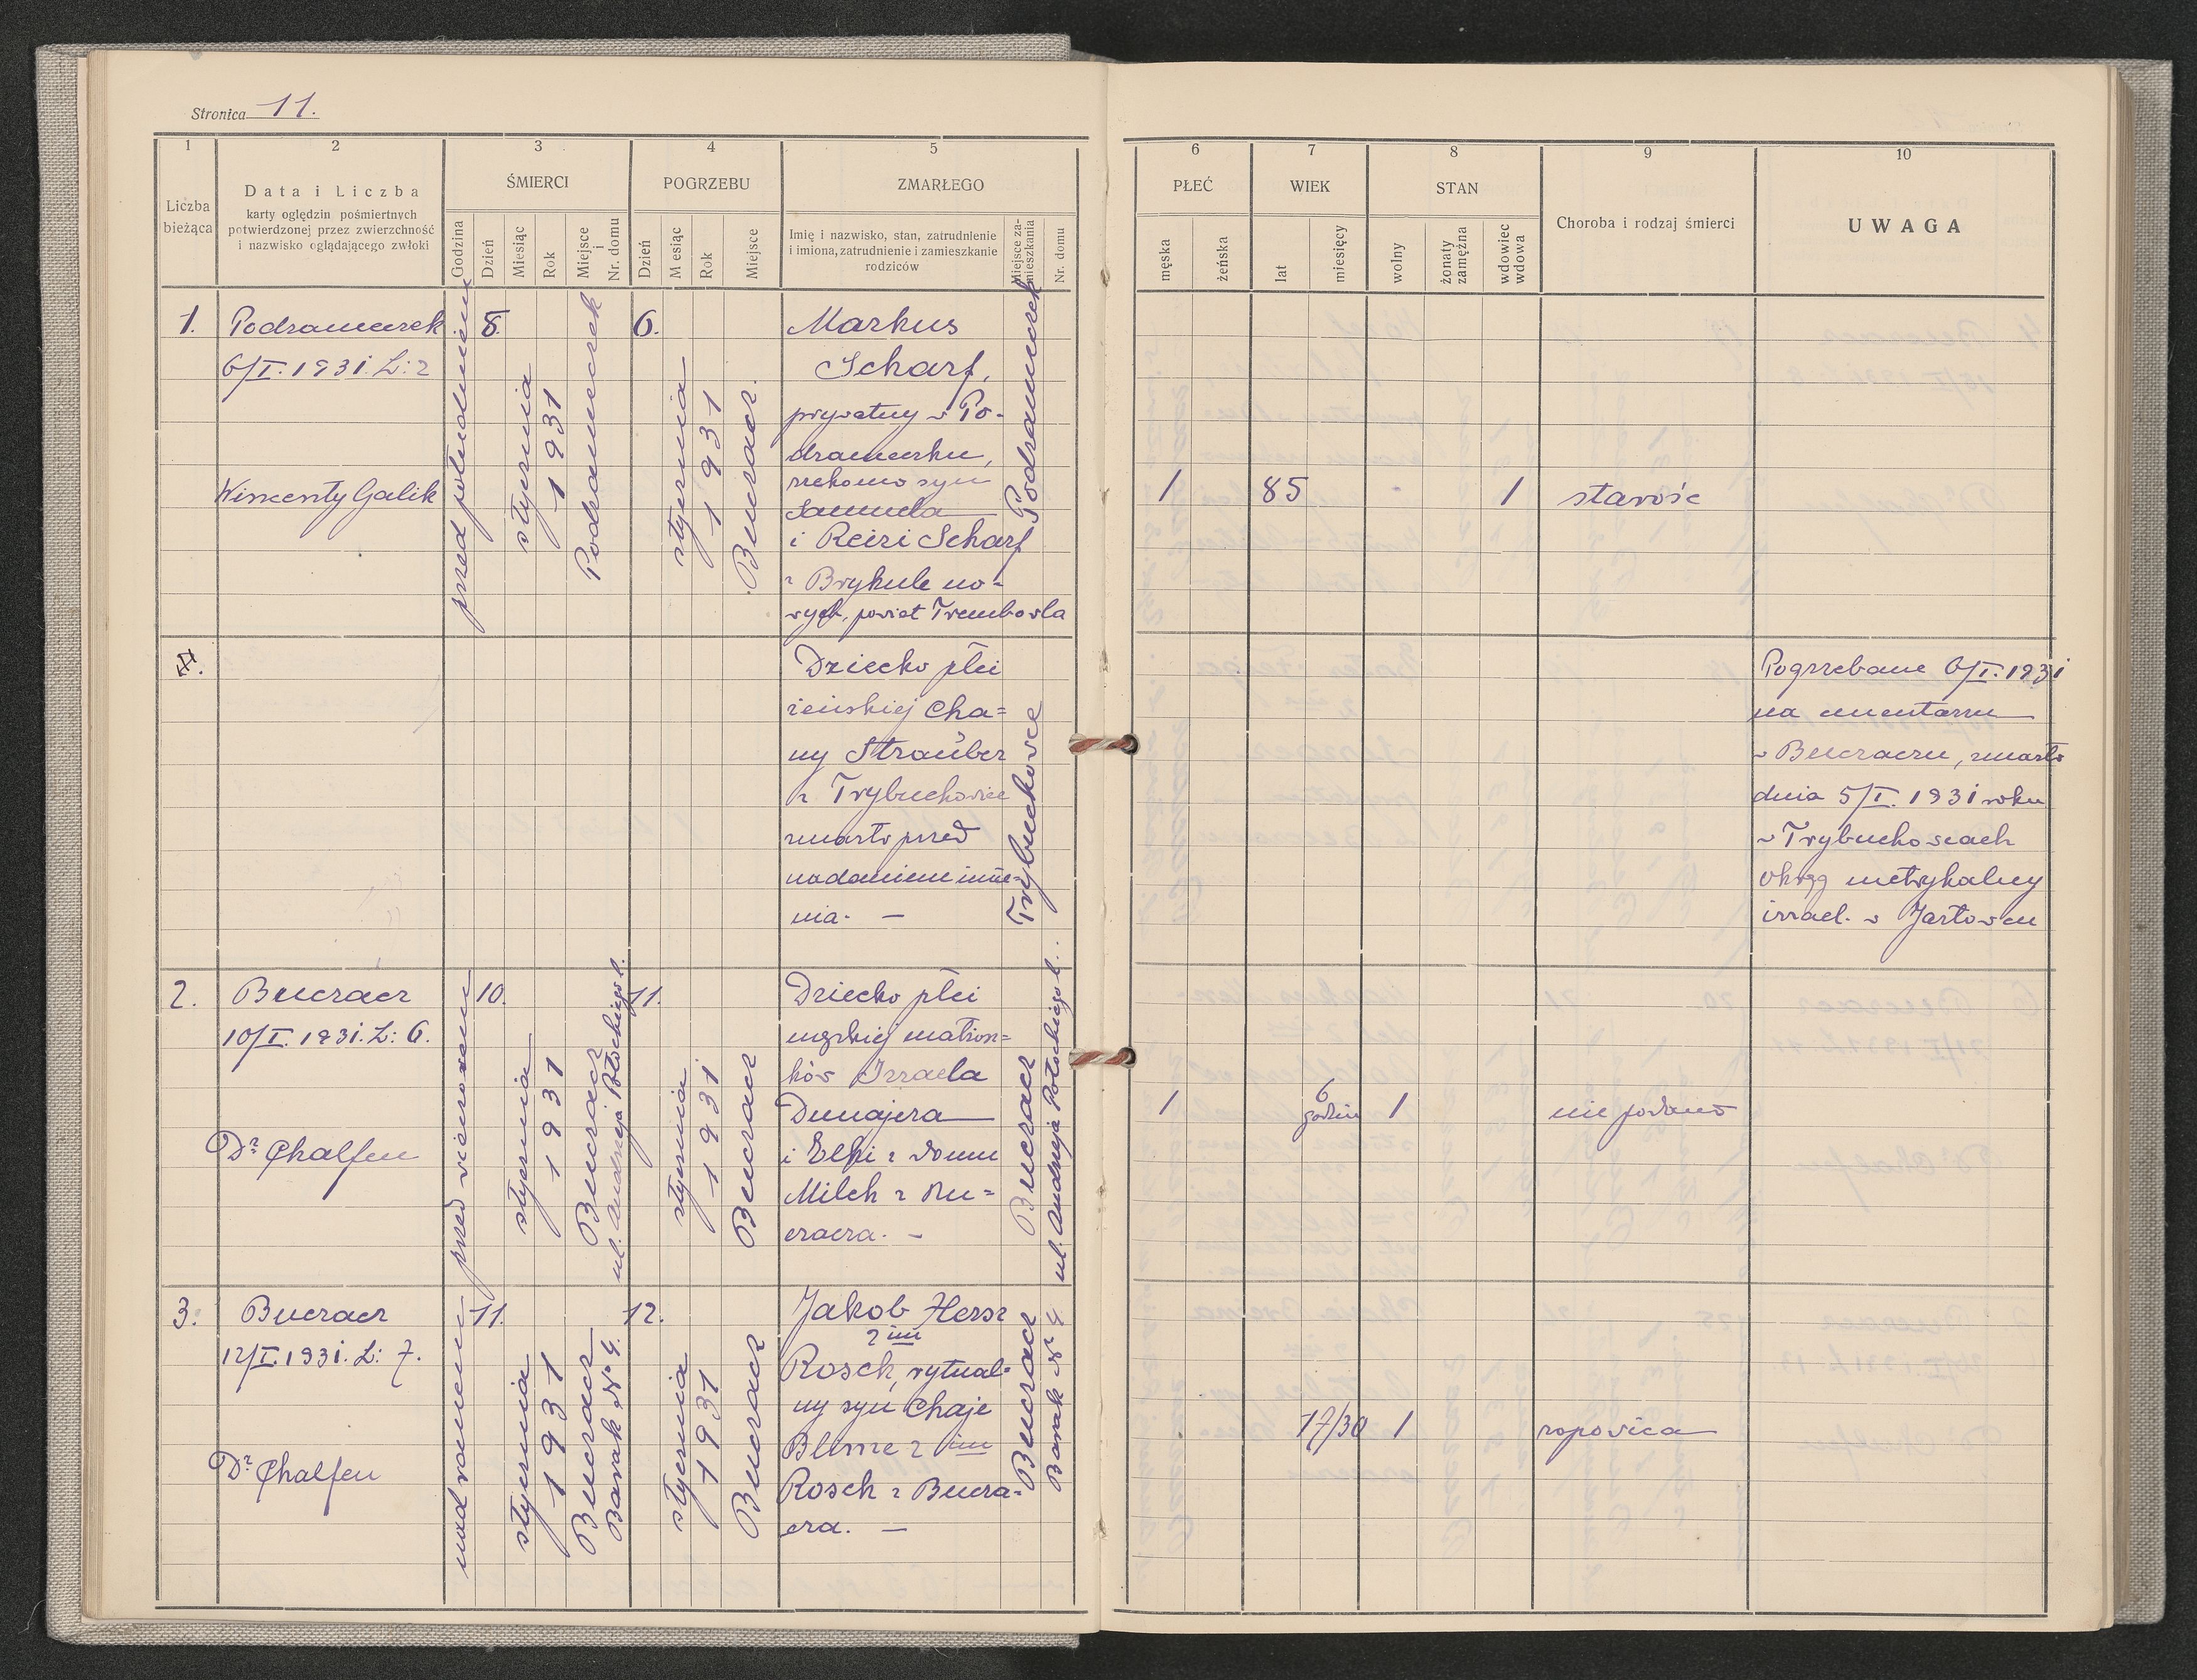 Stronica 11.
1
2
3
4
5
Liczba bieżąca
Data i Liczba
karty oględzin pośmiertnych
potwierdzonej przez zwierzchność
i nazwisko oglądającego zwłoki
ŚMIERCI
Godzina
Dzień
Miesiąc
Rok
Miejsce i Nr. domu
POGRZEBU
Dzień
M esiąc
Rok
Miejsce
ZMARŁEGO
Imię i nazwisko, stan, zatrudnienie
i imiona, zatrudnienie i zamieszkanie
rodziców
Miejsce za-
mieszkania
Nr. domu
6
7
8
9
10
PŁEĆ
męska
żeńska
WIEK
lat
miesięcy
STAN
wolny
żonaty
zamężna
wdowiec
wdowa
Choroba i rodzaj śmierci
UWAGA
1.
Podzameczek
6/I. 1931. L: 2
Wincenty Galik
przed południem
5.
stycznia
1931
Podzameczek
6.
stycznia
1931
Buczacz.
Markus
Scharf,
prywatny w Po-
dzameczku,
rzekomo syn
Samuela
i Reizi Scharf
z Brykule no-
wych, powiat Trembowla
Podzameczek
1
85
1
starość
Dziecko płci
żeńskiej Cha=
ny Straüber
z Trybuchowiec
zmarło przed
nadaniem imie-
nia. —
Trybuchowce
Pogrzebane 6/I. 1931
na cmentarzu
w Buczaczu, zmarło
dnia 5/I. 1931 roku
w Trybuchowcach
okrąg metrykalny
izrael. w Jazłowcu
2.
Buczacz
10/I. 1931. L: 6.
Dr Chalfen
przed wieczorem
10.
stycznia
1931
Buczacz
ul. Andrzeja Potockiego l.
11.
stycznia
1931
Buczacz
Dziecko płci
męskiej małżon=
ków Izraela
Dunajera
i Elki z domu
Milch z Bu=
czacza. -
Buczacz
ul. Andrzeja Potockiego l..
1
6
godzin
1
nie podano
3.
Buczacz
12/I. 1931. L: 7.
Dr Chalfen
nad ranem
11.
stycznia
1931
Buczacz
Barak No 4.
12.
stycznia
1931
Buczacz
Jakob Hersz
2 im
Rosck, rytual=
ny syn Chaje
Blime 2 im
Rosck z Bucza=
cza. —
Buczacz
Barak No 4.
17/30
1
ropowica